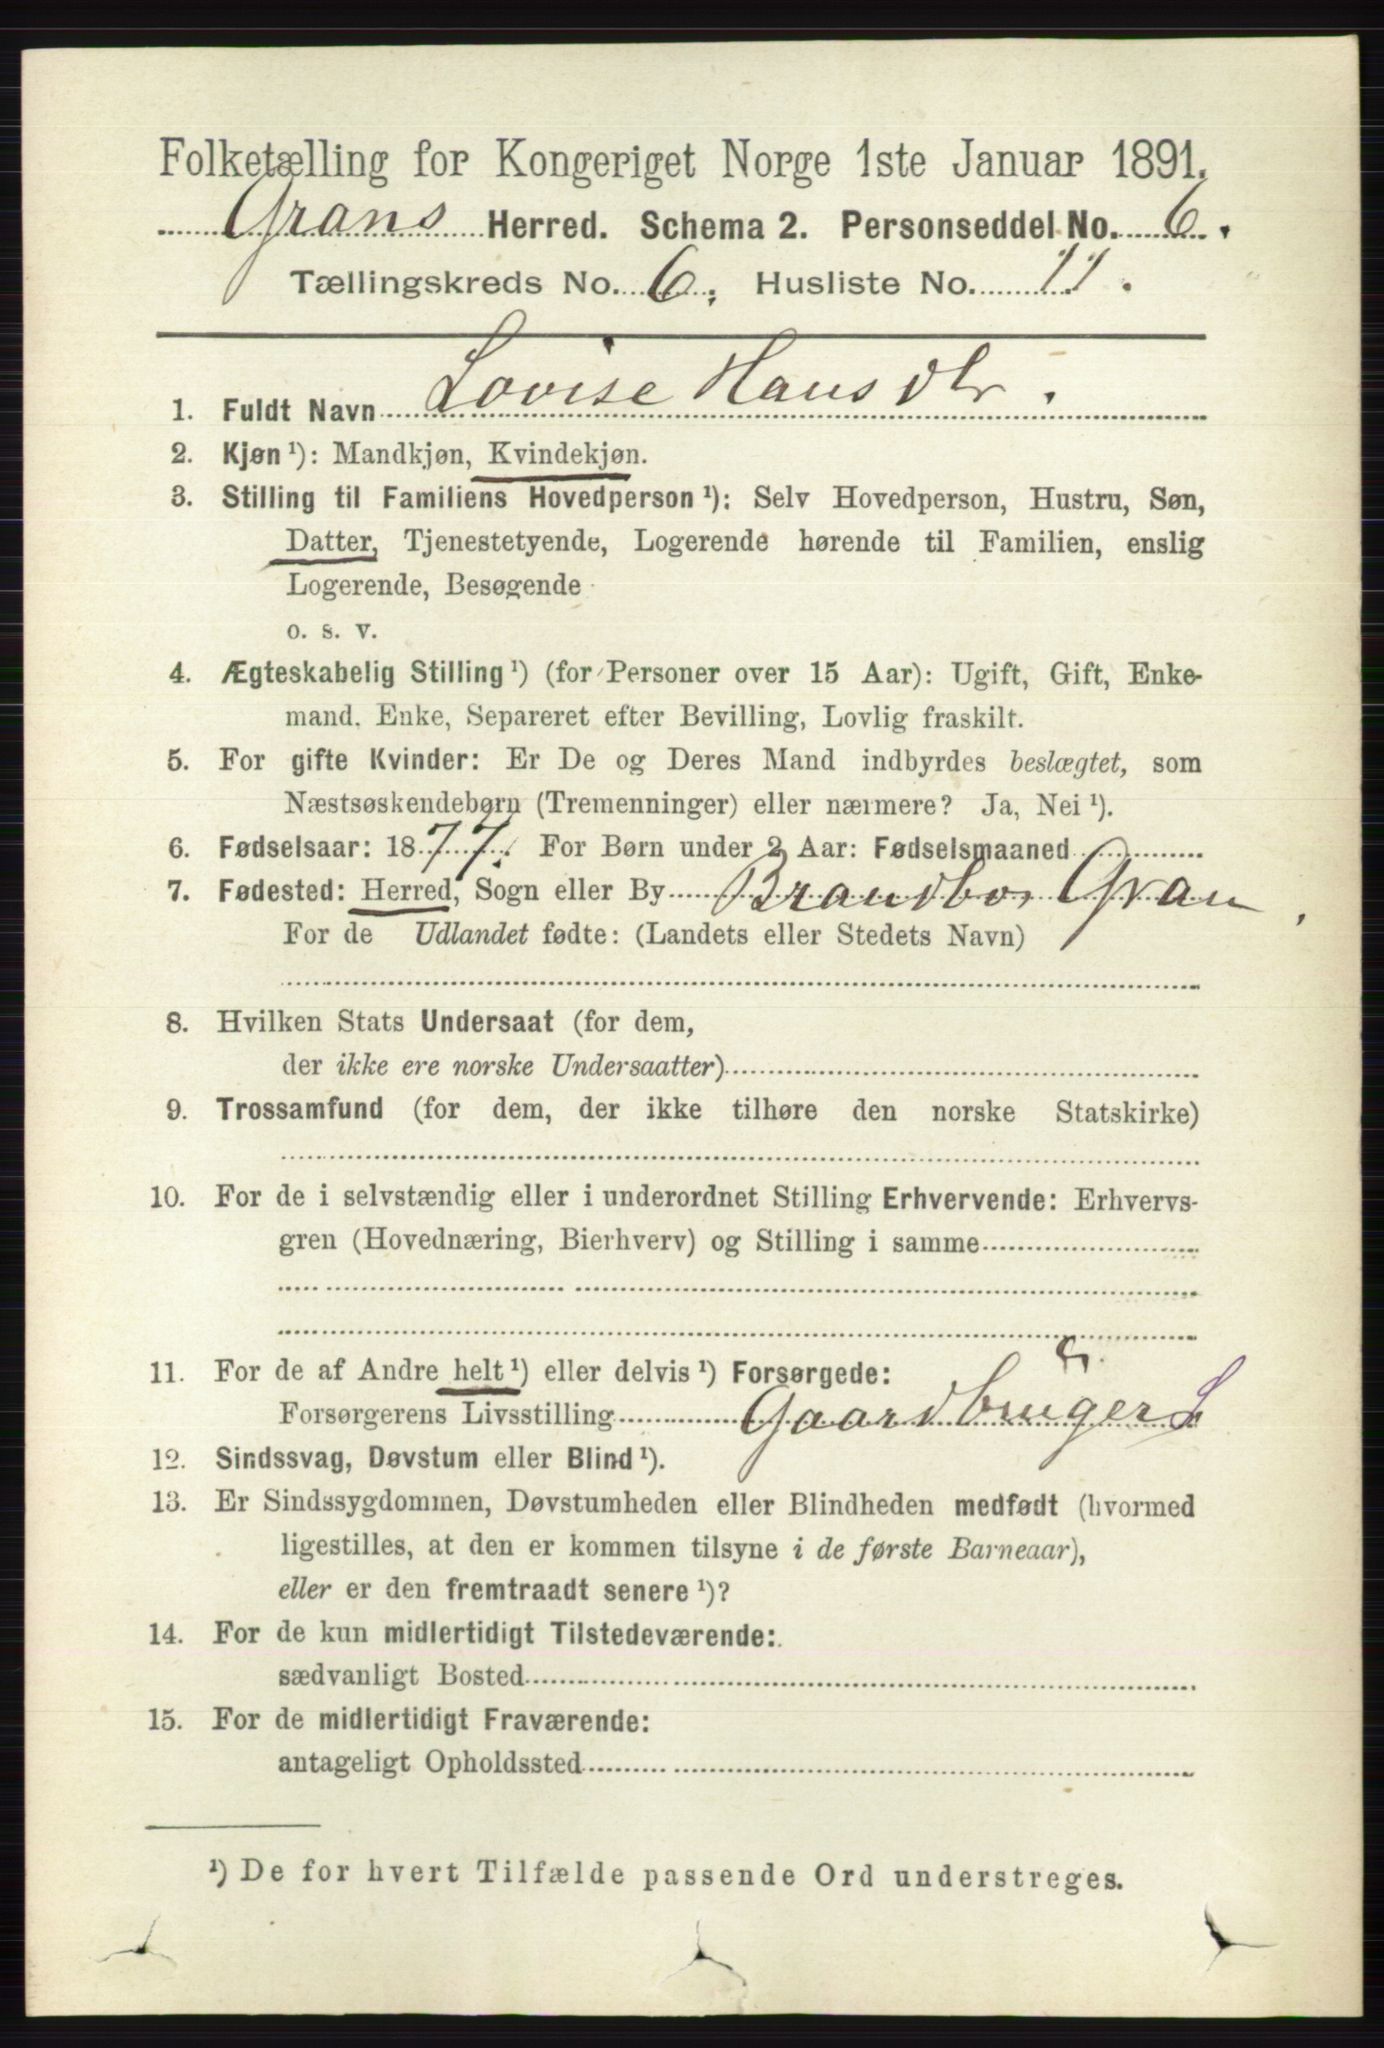 Folketælling for Kongeriget Norge 1ste Januar 1891.
Grans Herred. Schema 2. Personseddel No. 6.
Tællingskreds No. 6. Husliste No. 11.
1. Fuldt Navn Lovise Hansdtr.
2. Kjøn ¹): Mandkjøn, Kvindekjøn.
3. Stilling til Familiens Hovedperson ¹): Selv Hovedperson, Hustru, Søn,
Datter, Tjenestetyende, Logerende hørende til Familien, enslig
Logerende, Besøgende
o. s. v.
4. Ægteskabelig Stilling ¹) (for Personer over 15 Aar): Ugift, Gift, Enke-
mand, Enke, Separeret efter Bevilling, Lovlig fraskilt.
5. For gifte Kvinder: Er De og Deres Mand indbyrdes beslægtet, som
Næstsøskendebørn (Tremenninger) eller nærmere? Ja, Nei ¹).
6. Fødselsaar: 1877. For Børn under 2 Aar: Fødselsmaaned
7. Fødested: Herred, Sogn eller By Brandbo, Gran
For de Udlandet fødte: (Landets eller Stedets Navn)
8. Hvilken Stats Undersaat (for dem,
der ikke ere norske Undersaatter)
9. Trossamfund (for dem, der ikke tilhøre den norske Statskirke)
10. For de i selvstændig eller i underordnet Stilling Erhvervende: Erhvervs-
gren (Hovednæring, Bierhverv) og Stilling i samme
11. For de af Andre helt ¹) eller delvis ¹) Forsørgede:
Forsørgerens Livsstilling Gaardbruger S
12. Sindssvag, Døvstum eller Blind ¹).
13. Er Sindssygdommen, Døvstumheden eller Blindheden medfødt (hvormed
ligestilles, at den er kommen tilsyne i de første Barneaar),
eller er den fremtraadt senere ¹)?
14. For de kun midlertidigt Tilstedeværende:
sædvanligt Bosted
15. For de midlertidigt Fraværende:
antageligt Opholdssted
¹) De for hvert Tilfælde passende Ord understreges.